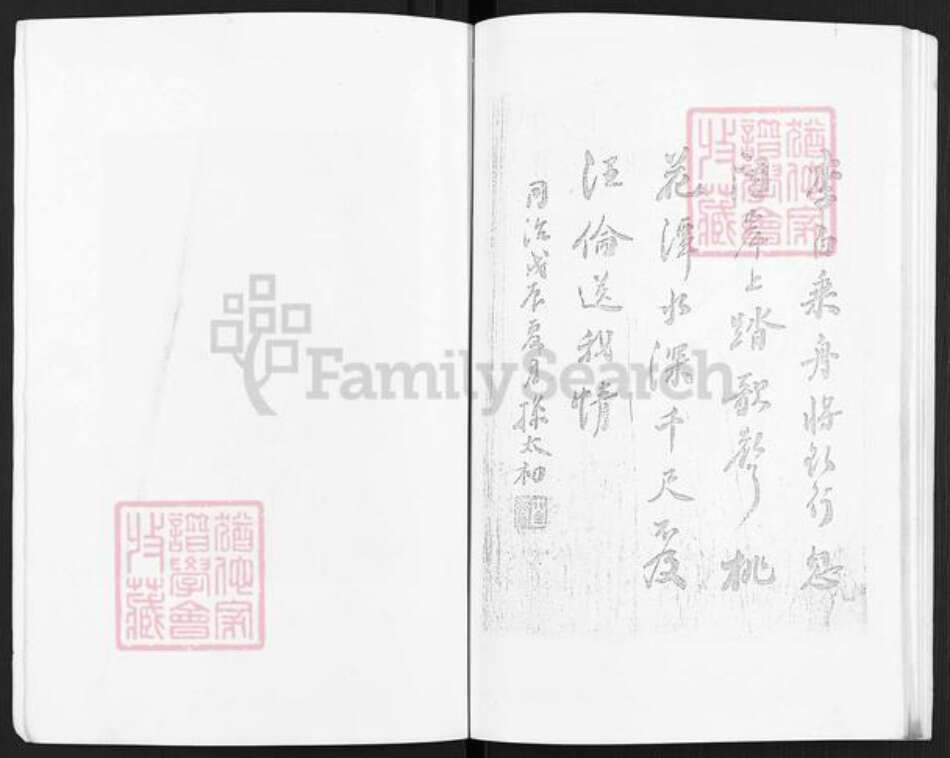 李白乘舟將欲行忽
聞岸上踏歌聲桃
花潭水深千尺不及
汪倫送我情
同治戊辰夏月孫太初
猶他家
譜學會
收藏
猶他家
譜學會
收藏
FamilySearch